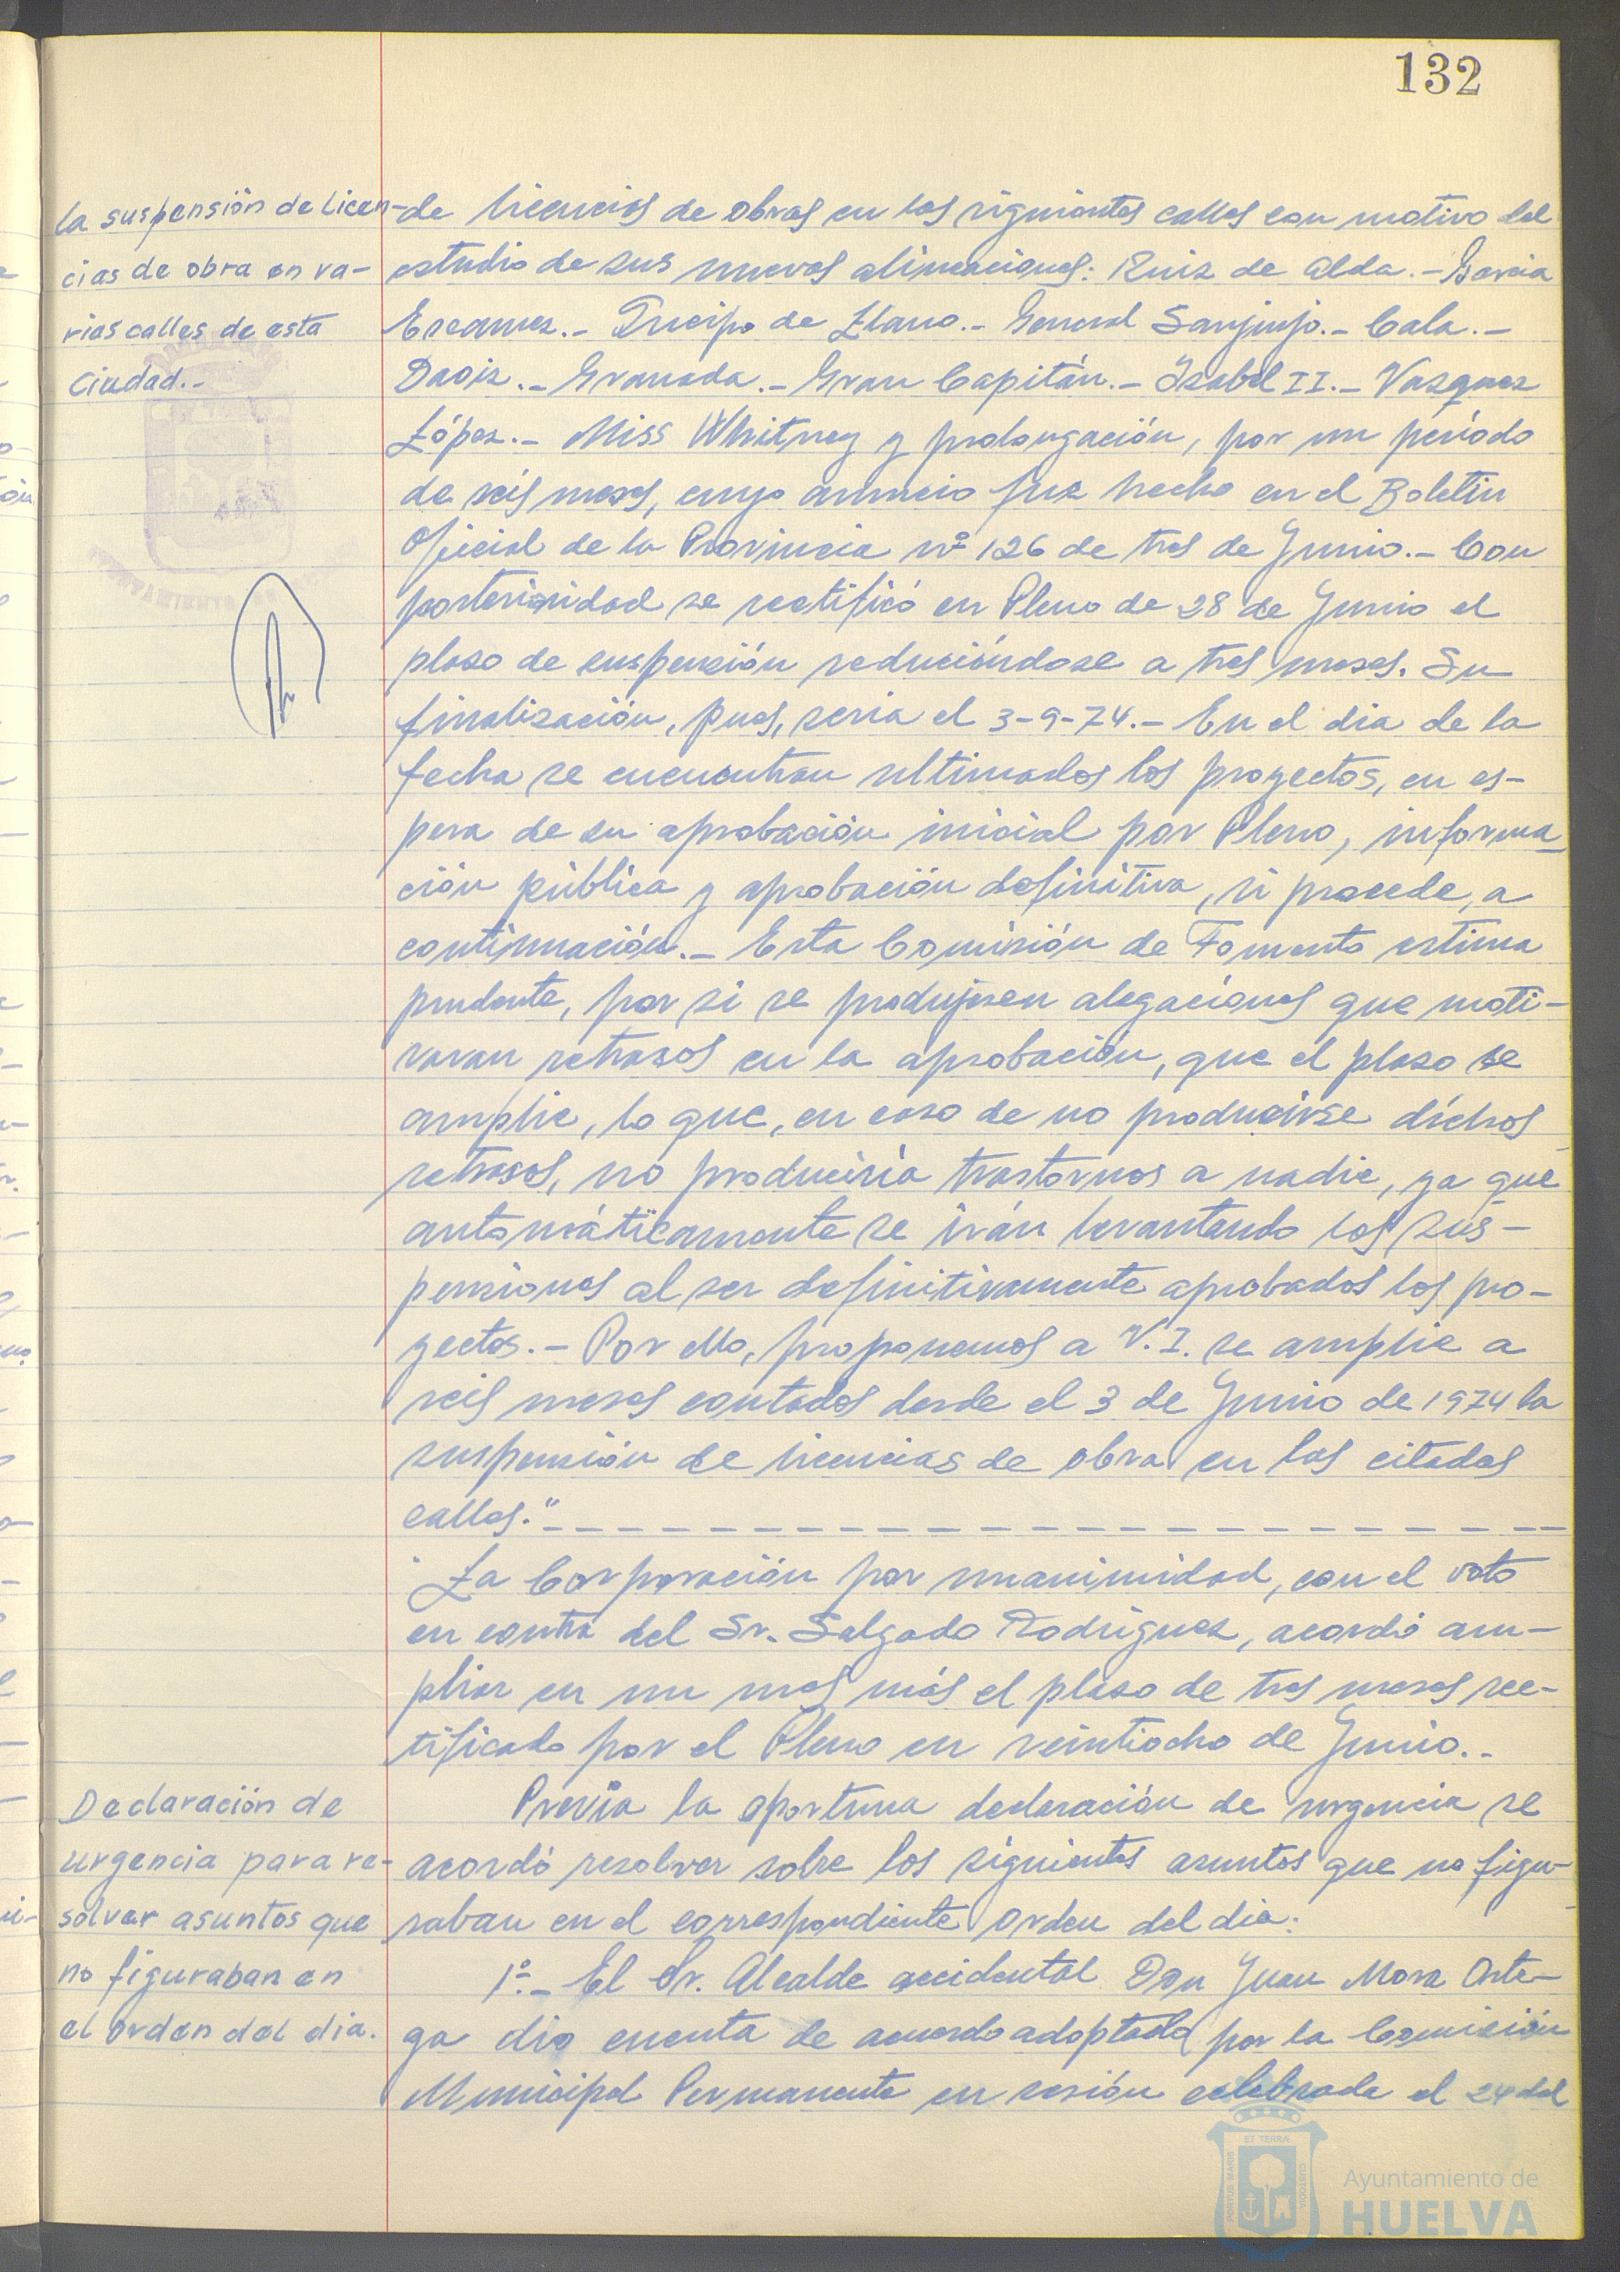 132
la suspensión de licen-
cias de obra en va-
rias calles de esta
Ciudad.-
de licencias de obras en las siguientes calles con motivo del
estudio de sus nuevas alineaciones: Ruiz de Alda.- Garcia
Escamez.- Queipo de Llano.- General Sanjurjo.- Cala.-
Daoiz.- Granada.- Gran Capitán.- Isabel II.- Vazquez
López.- Miss Whitney y prolongación, por un período
de seis meses, cuyo anuncio fue hecho en el Boletin
Oficial de la Provincia nº 126 de tres de Junio.- Con
posterioridad se rectificó en Pleno de 28 de Junio el
plazo de suspensión reduciéndose a tres meses. Su
finalización, pues, seria el 3-9-74.- En el dia de la
fecha se encuentran ultimados los proyectos, en es-
pera de su aprobación inicial por Pleno, informa-
ción pública y aprobación definitiva, si procede, a
continuación.- Esta Comisión de Fomento estima
prudente, por si se produjesen alegaciones que moti-
varan retrasos en la aprobación, que el plazo se
amplie, lo que, en caso de no producirse dichos
retrasos, no produciría trastornos a nadie, ya que
automáticamente se irán levantando las sus-
pensiones al ser definitivamente aprobados los pro-
yectos.- Por ello, proponemos a V.I. se amplie a
seis meses contados desde el 3 de Junio de 1974 la
suspensión de licencias de obra en las citadas
calles."
La Corporación por unanimidad, con el voto
en contra del Sr. Salgado Rodríguez, acordó am-
pliar en un mes más el plazo de tres meses rec-
tificado por el Pleno en veintiocho de Junio.-
Declaración de
urgencia para re-
solver asuntos que
no figuraban en
el orden del dia.
Previa la oportuna declaración de urgencia se
acordó resolver sobre los siguientes asuntos que no figu-
raban en el correspondiente orden del dia:
1º.- El Sr. Alcalde accidental Don Juan Mora Orte-
ga dio cuenta de acuerdo adoptado por la Comisión
Municipal Permanente en sesión celebrada el 24 del
PORTUS MARIS
ET TERRÆ
CUSTODIA
Ayuntamiento de
HUELVA